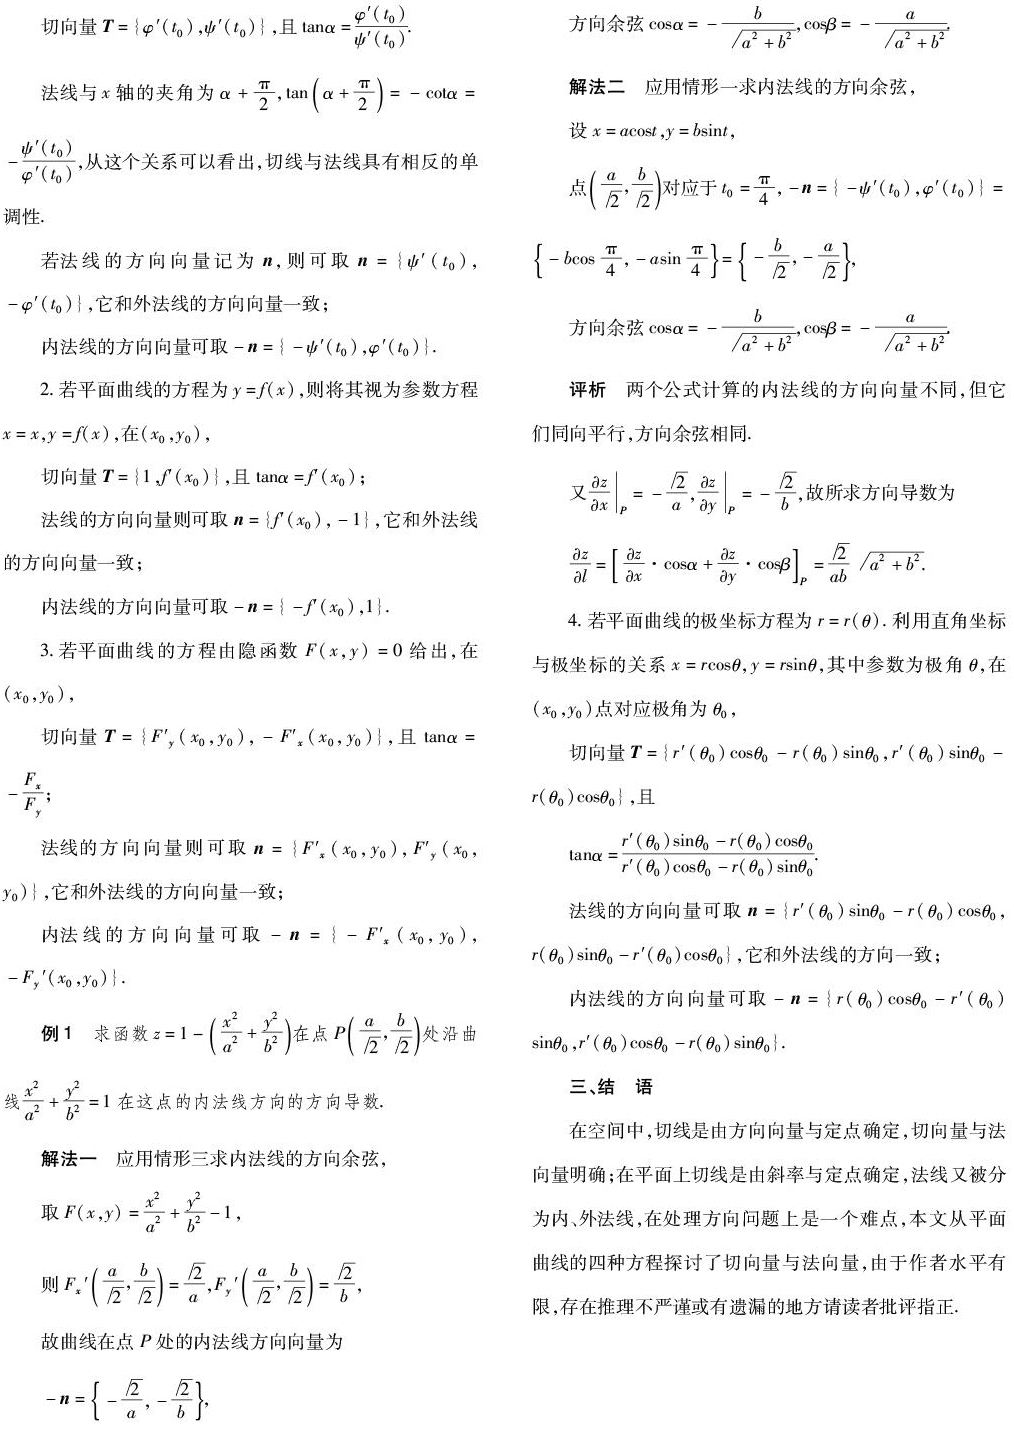 切向量 T = {φ′(t₀),ψ′(t₀)},且 tanα = φ′(t₀)/ψ′(t₀).
法线与 x 轴的夹角为 α + π/2, tan(α + π/2) = - cotα =
- ψ′(t₀)/φ′(t₀),从这个关系可以看出,切线与法线具有相反的单
调性.
若法线的方向向量记为 n,则可取 n = {ψ′(t₀),
-φ′(t₀)},它和外法线的方向向量一致;
内法线的方向向量可取 -n = { -ψ′(t₀),φ′(t₀)}.
2. 若平面曲线的方程为 y = f(x),则将其视为参数方程
x = x,y = f(x),在(x₀,y₀),
切向量 T = {1,f′(x₀)},且 tanα = f′(x₀);
法线的方向向量则可取 n = {f′(x₀), -1},它和外法线
的方向向量一致;
内法线的方向向量可取 -n = { -f′(x₀),1}.
3. 若平面曲线的方程由隐函数 F(x,y) = 0 给出,在
(x₀,y₀),
切向量 T = {F′y(x₀,y₀), - F′x(x₀,y₀)},且 tanα =
- Fx/Fy;
法线的方向向量则可取 n = {F′x(x₀,y₀),F′y(x₀,
y₀)},它和外法线的方向向量一致;
内法线的方向向量可取 - n = { - F′x(x₀,y₀),
-Fy′(x₀,y₀)}.
例 1 求函数 z = 1 - (x²/a² + y²/b²)在点 P(a/√2, b/√2)处沿曲
线 x²/a² + y²/b² = 1 在这点的内法线方向的方向导数.
解法一 应用情形三求内法线的方向余弦,
取 F(x,y) = x²/a² + y²/b² - 1,
则 Fx′(a/√2, b/√2) = √2/a, Fy′(a/√2, b/√2) = √2/b,
故曲线在点 P 处的内法线方向向量为
-n = { - √2/a, - √2/b},
方向余弦 cosα = - b/√(a² + b²), cosβ = - a/√(a² + b²).
解法二 应用情形一求内法线的方向余弦,
设 x = acost,y = bsint,
点(a/√2, b/√2)对应于 t₀ = π/4, -n = { -ψ′(t₀),φ′(t₀)} =
{ - bcos π/4, - asin π/4} = { - b/√2, - a/√2},
方向余弦 cosα = - b/√(a² + b²), cosβ = - a/√(a² + b²).
评析 两个公式计算的内法线的方向向量不同,但它
们同向平行,方向余弦相同.
又 ∂z/∂x|P = - √2/a, ∂z/∂y|P = - √2/b,故所求方向导数为
∂z/∂l = [∂z/∂x · cosα + ∂z/∂y · cosβ]P = √2/ab √(a² + b²).
4. 若平面曲线的极坐标方程为 r = r(θ). 利用直角坐标
与极坐标的关系 x = rcosθ,y = rsinθ,其中参数为极角 θ,在
(x₀,y₀)点对应极角为 θ₀,
切向量 T = {r′(θ₀)cosθ₀ - r(θ₀)sinθ₀,r′(θ₀)sinθ₀ -
r(θ₀)cosθ₀},且
tanα = (r′(θ₀)sinθ₀ - r(θ₀)cosθ₀)/(r′(θ₀)cosθ₀ - r(θ₀)sinθ₀).
法线的方向向量可取 n = {r′(θ₀)sinθ₀ - r(θ₀)cosθ₀,
r(θ₀)sinθ₀ - r′(θ₀)cosθ₀},它和外法线的方向一致;
内法线的方向向量可取 - n = {r(θ₀)cosθ₀ - r′(θ₀)
sinθ₀,r′(θ₀)cosθ₀ - r(θ₀)sinθ₀}.
三、结 语
在空间中,切线是由方向向量与定点确定,切向量与法
向量明确;在平面上切线是由斜率与定点确定,法线又被分
为内、外法线,在处理方向问题上是一个难点,本文从平面
曲线的四种方程探讨了切向量与法向量,由于作者水平有
限,存在推理不严谨或有遗漏的地方请读者批评指正.